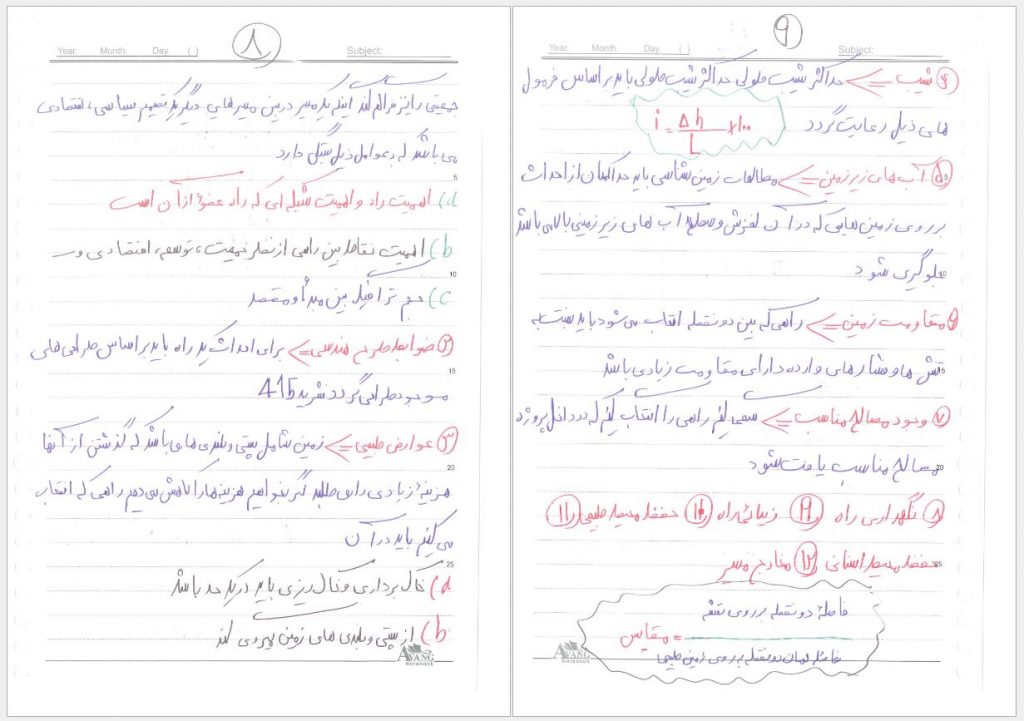 ۸
Year. Month. Day. ( ) Subject:
جمعیتی را نیز فراهم کند اینکه یک مسیر در بین مسیرهای دیگر یک تصمیم سیاسی، اقتصادی
می باشد که به عوامل ذیل بستگی دارد
a) اهمیت راه و اهمیت شبکه ای که راه عضو از آن است
b) اهمیت نقاط بین راهی از نظر جمعیت، توسعه، اقتصادی و...
c) حجم ترافیک بین مبدأ و مقصد
۲) ضوابط طرح هندسی => برای احداث یک راه باید بر اساس طراحی های
موجود طراحی گردد نشریه 415
۳) عوارض طبیعی => زمین شامل پستی و بلندی های می باشد که گذشتن از آنها
هزینهٔ زیادی را می طلبد اگر بخواهیم هزینه ها را کاهش می دهیم راهی که انتخاب
می کنیم باید در آن
a) خاک برداری و خاک ریزی باید در یک حد باشد
b) از پستی و بلندی های زمین پیروی کند
AVANG
Notebook
۹
Year. Month. Day. ( ) Subject:
۴) شیب => حداکثر شیب طولی حداکثر شیب طولی باید بر اساس فرمول
های ذیل رعایت گردد i = Δh / L ×۱۰۰
۵) آب های زیرزمین => مطالعات زمین شناسی باید حداالمکان از احداث
بر روی زمین هایی که در آن لغزش و سطح آب های زیرزمینی بالا می باشد
جلوگیری شود
۶) مقاومت زمین => راهی که بین دو نقطه انتخاب می شود باید نسبت به
تنش ها و فشارهای وارده دارای مقاومت زیادی باشد
۷) وجود مصالح مناسب => سعی کنیم راهی را انتخاب کنیم که در داخل پروژه
مصالح مناسب یافت شود
۸) نگهداری راه ۹) زیبائی راه ۱۰) حفظ محیط طبیعی ۱۱)
حفظ محیط انسانی ۱۲) مخارج مسیر
فاصلهٔ دو نقطه بر روی نقشه
مقیاس =
فاصله همان دو نقطه بر روی زمین طبیعی
AVANG
Notebook